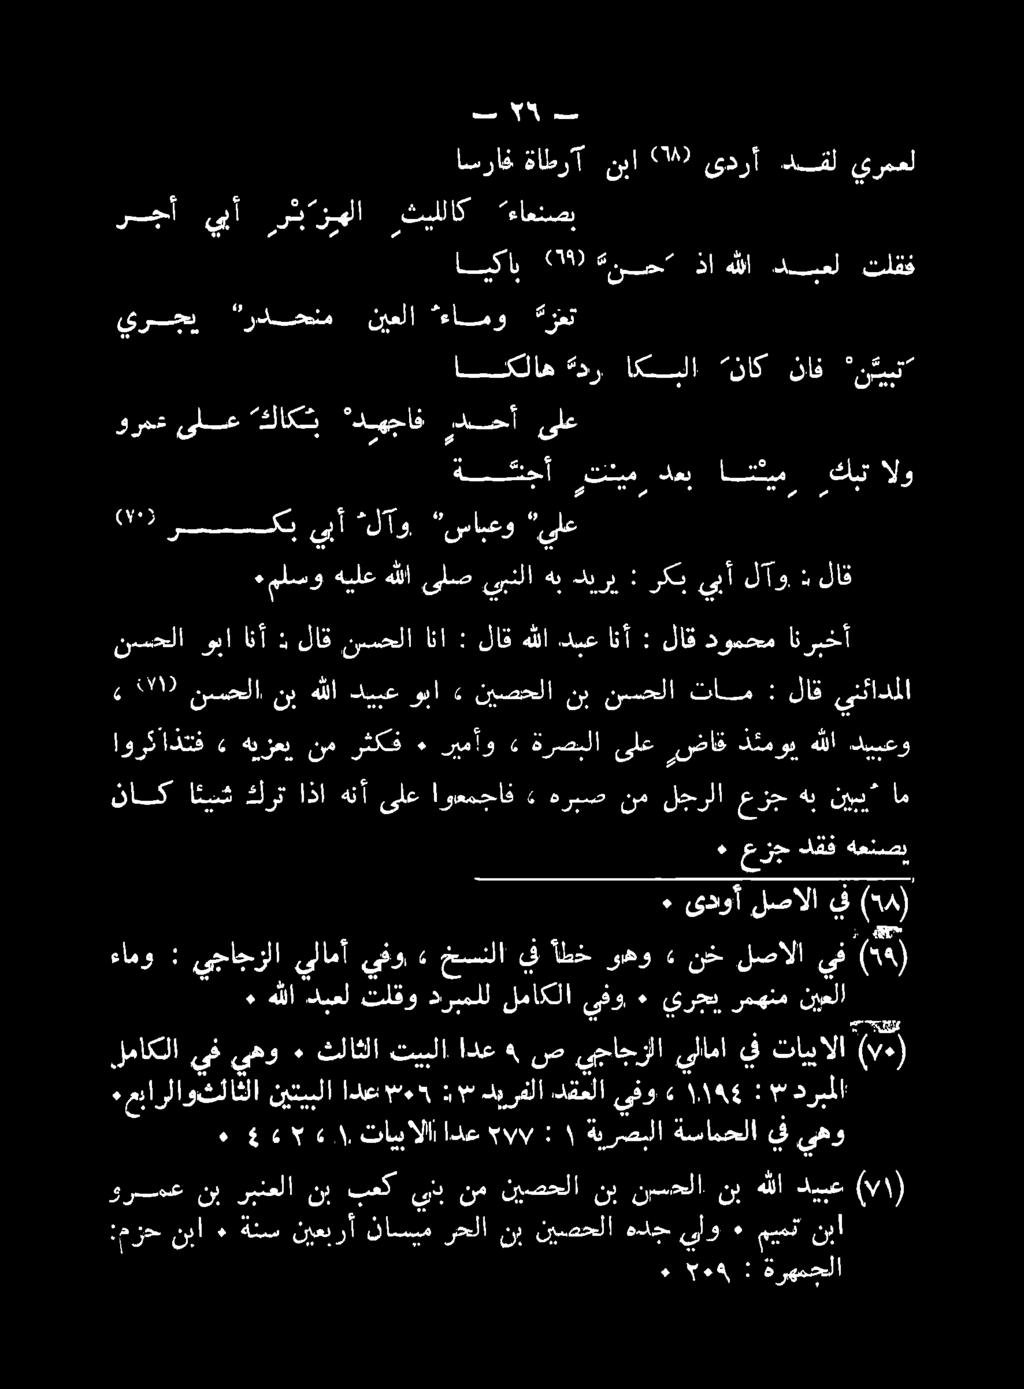 — ٢٦ —
لعمري لقد أردى (٦٨) ابن آرطاة فارسا
بصنعاءَ كالليثِ الهِزَبْرِ أبي أجر
فقلت لعبد الله اذ حَنَّ (٦٩) باكيا
تعزَّ وماءُ العين منحدرٌ يجري
تَبيَّنْ فان كانَ البكا ردَّ هالكا
على أحدٍ فاجهِدْ بُكاكَ على عمرو
ولا تبكِ مِيْتا بعد مِيْتٍ أجنَّة
عليٌ وعباسٌ وآلُ أبي بكر (٧٠)
قال : وآل أبي بكر : يريد به النبي صلى الله عليه وسلم.
أخبرنا محمود قال : أنا عبد الله قال : انا الحسن قال : أنا ابو الحسن
المدائني قال : مات الحسن بن الحصين ، ابو عبيد الله بن الحسن (٧١) ،
وعبيد الله يومئذ قاضٍ على البصرة ، وأمير . فكثر من يعزيه ، فتذاكروا
ما يُبين به جزع الرجل من صبره ، فاجمعوا على أنه اذا ترك شيئا كان
يصنعه فقد جزع .
(٦٨) في الاصل أودى .
(٦٩) في الاصل خن ، وهو خطأ في النسخ ، وفي أمالي الزجاجي : وماء
العين منهمر يجري . وفي الكامل للمبرد وقلت لعبد الله .
(٧٠) الابيات في امالي الزجاجي ص ٩ عدا البيت الثالث . وهي في الكامل
المبرد ٣ : ١١٩٤ ، وفي العقد الفريد ٣ : ٣٠٦ عدا البيتين الثالث والرابع.
وهي في الحماسة البصرية ١ : ٢٧٧ عدا الابيات ١ ، ٢ ، ٤ .
(٧١) عبيد الله بن الحسن بن الحصين من بني كعب بن العنبر بن عمرو
ابن تميم . ولي جده الحصين بن الحر ميسان أربعين سنة . ابن حزم:
الجمهرة : ٢٠٩ .